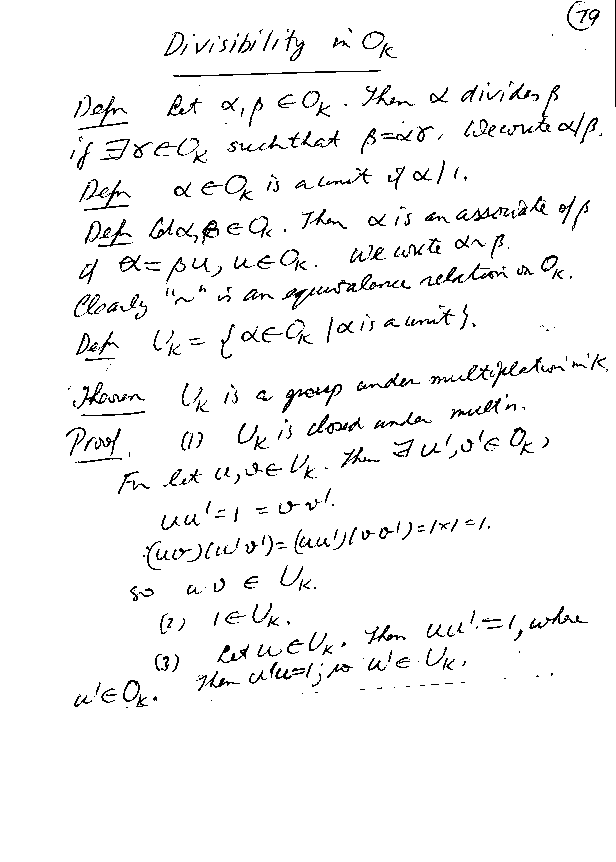 79
Divisibility in O_K
Defn Let α, β ∈ O_K. Then α divides β
if ∃ γ ∈ O_K such that β = αγ. We write α/β.
Defn α ∈ O_K is a unit if α/1.
Defn Let α, β ∈ O_K. Then α is an associate of β
if α = βu, u ∈ O_K. We write α ~ β.
Clearly "~" is an equivalence relation on O_K.
Defn U_K = { α ∈ O_K | α is a unit }.
Theorem U_K is a group under multiplication in K.
Proof. (1) U_K is closed under mult'n.
For let u, v ∈ U_K. Then ∃ u', v' ∈ O_K,
uu' = 1 = vv'.
(uv)(u'v') = (uu')(vv') = 1×1 = 1.
so uv ∈ U_K.
(2) 1 ∈ U_K.
(3) Let u ∈ U_K. Then uu' = 1, where
u' ∈ O_K. Then u'u = 1; so u' ∈ U_K.